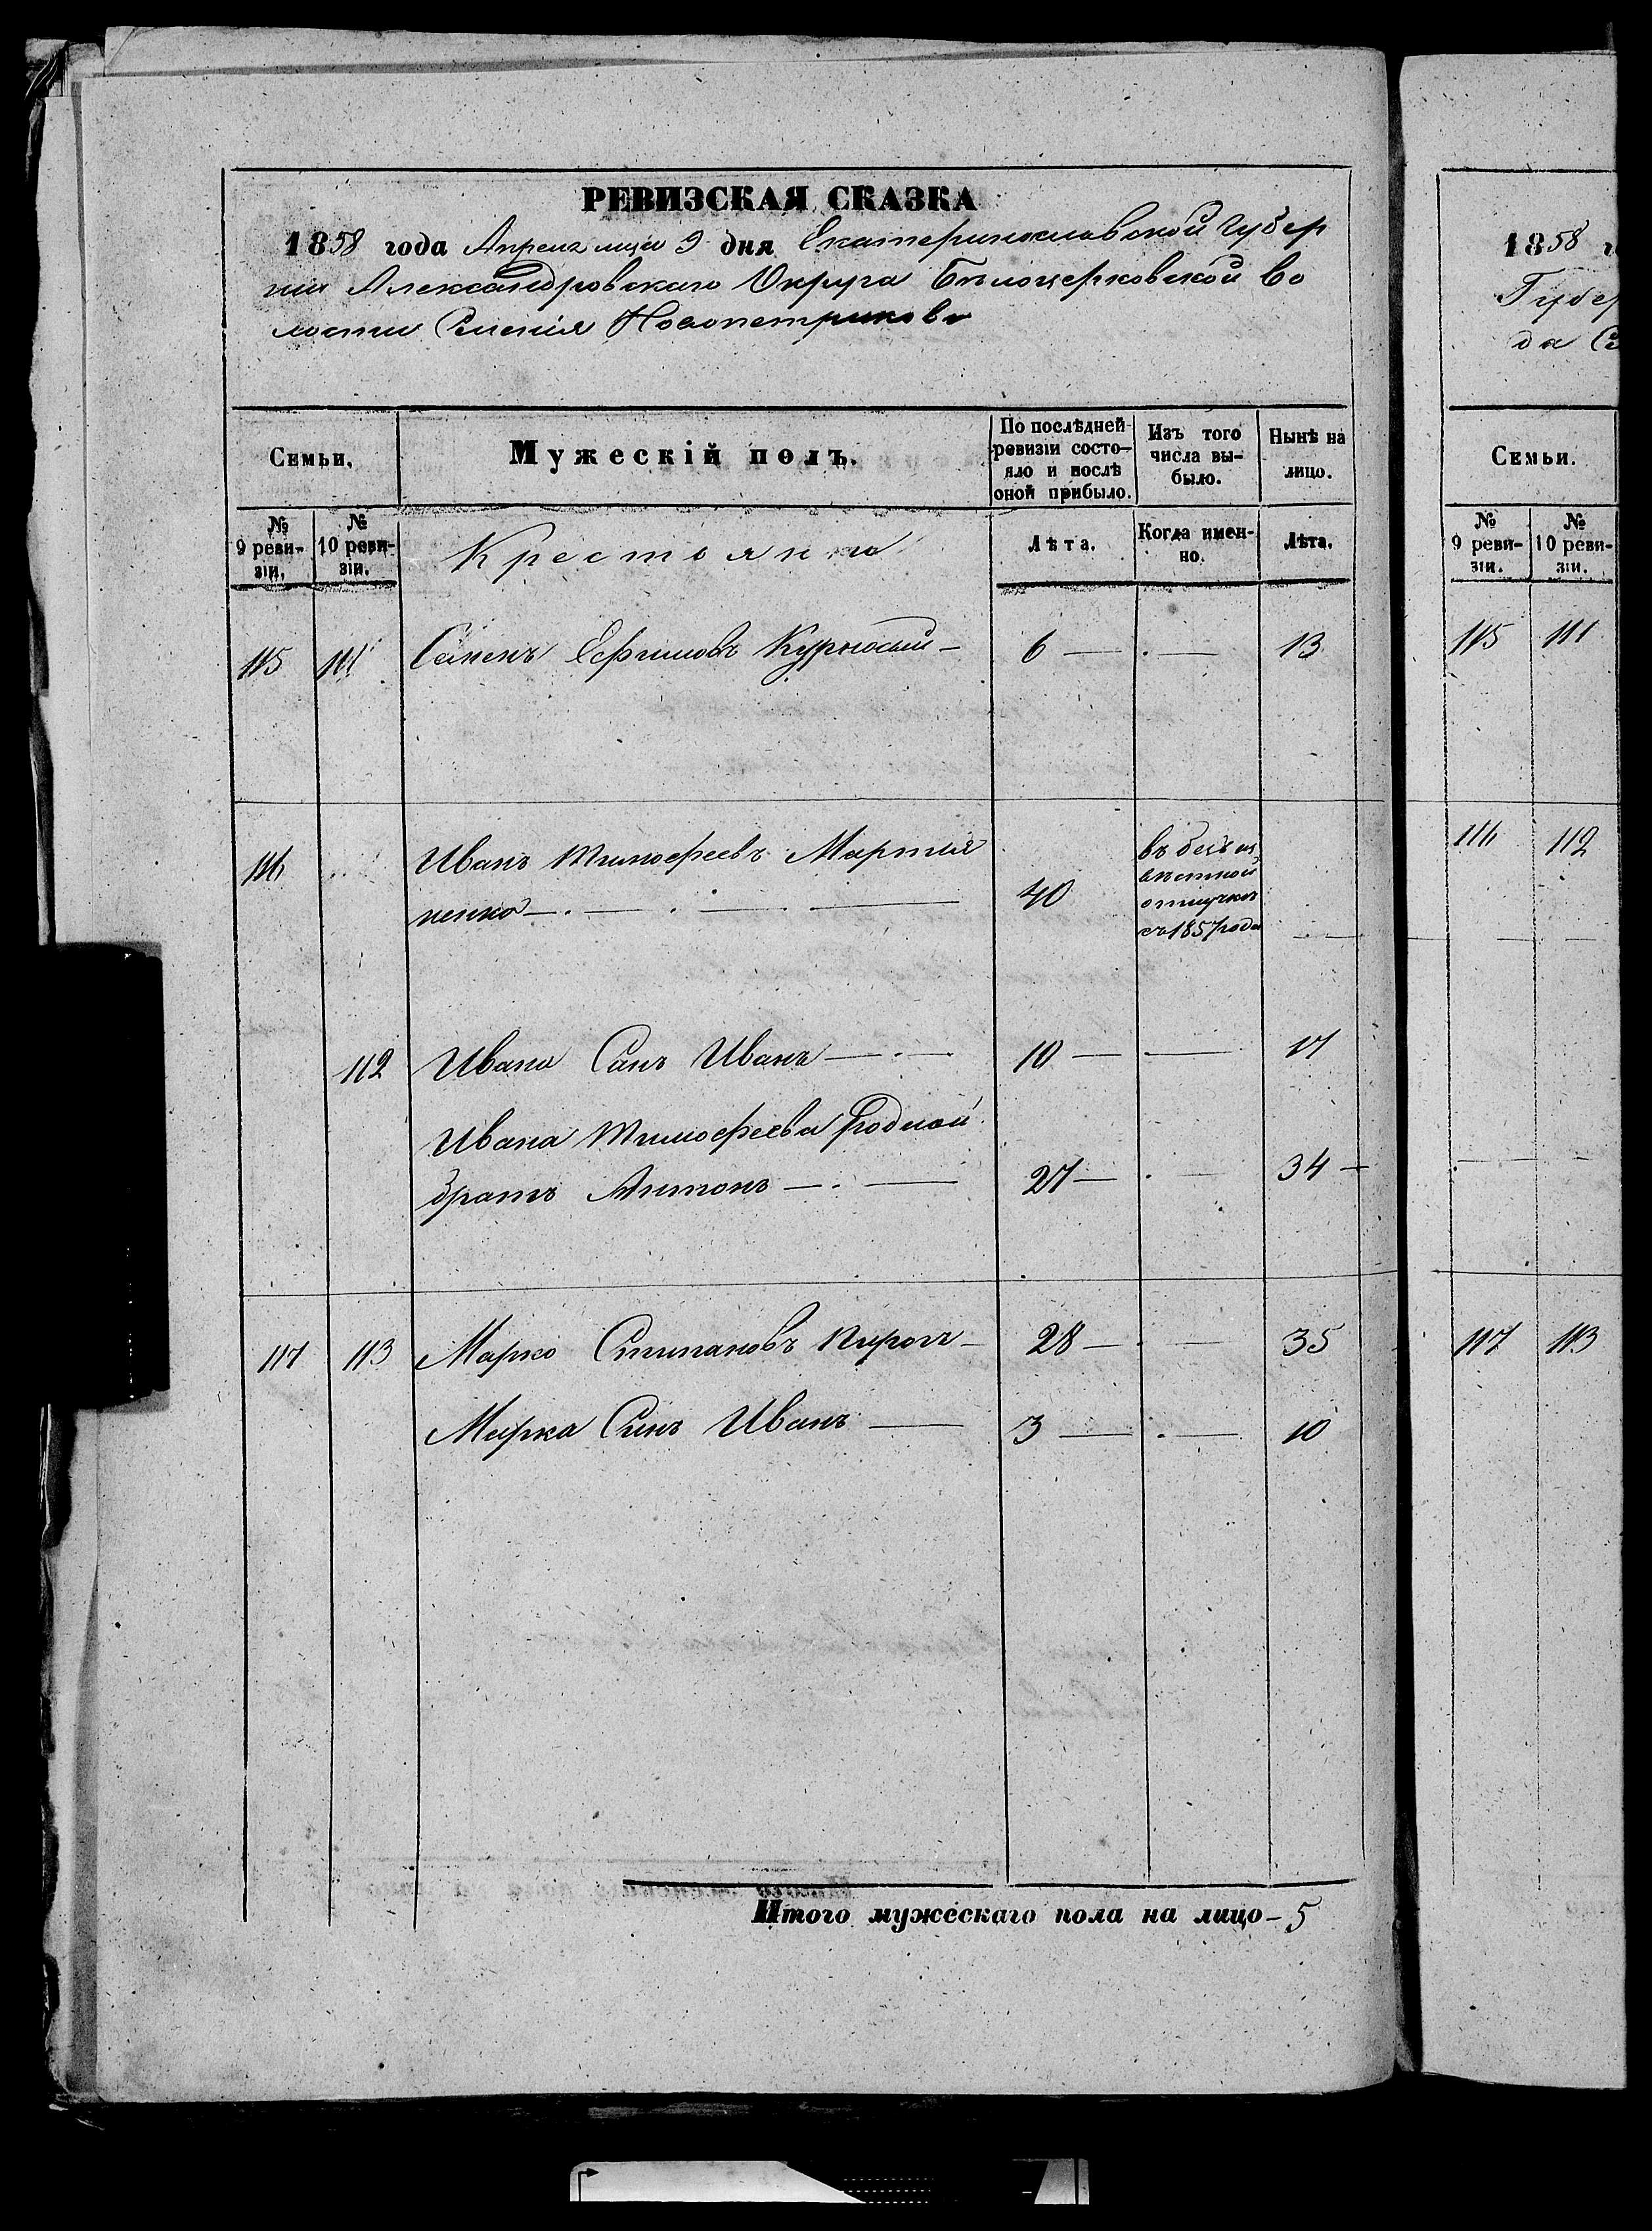 РЕВИЗСКАЯ СКАЗКА
1858 года Апреля мца 9 дня Екатеринославской Губер
нии Александровскаго Округа Белоцерковской Во
лости Селенія Новопетриковки
Семьи.
Мужескій полъ.
По послѣдней ревизіи состояло и послѣ оной прибыло.
Изъ того числа выбыло.
Нынѣ на лицо.
№ 9 ревизіи.
№ 10 ревизіи.
Крестояни
Лѣта.
Когда именно.
Лѣта.
115 111 Семенъ Ефимовъ Курносый 6 — . — 13
116 Иванъ Тимофеевъ Мартыненко
40 въ безъизвестной отлучке съ 1857 года
112 Ивана Сынъ Иванъ 10 — — 17
Ивана Тимофеева Родной
братъ Антонъ 27 — . — 34
117 113 Марко Стипановъ Пирогъ 28 — . — 35
Марка Сынъ Иванъ 3 — . — 10
Итого мужескаго пола на лицо - 5
1858 г
Губер
да Се
Семьи.
№ 9 ревизіи.
№ 10 ревизіи.
115 111
116 112
117 113